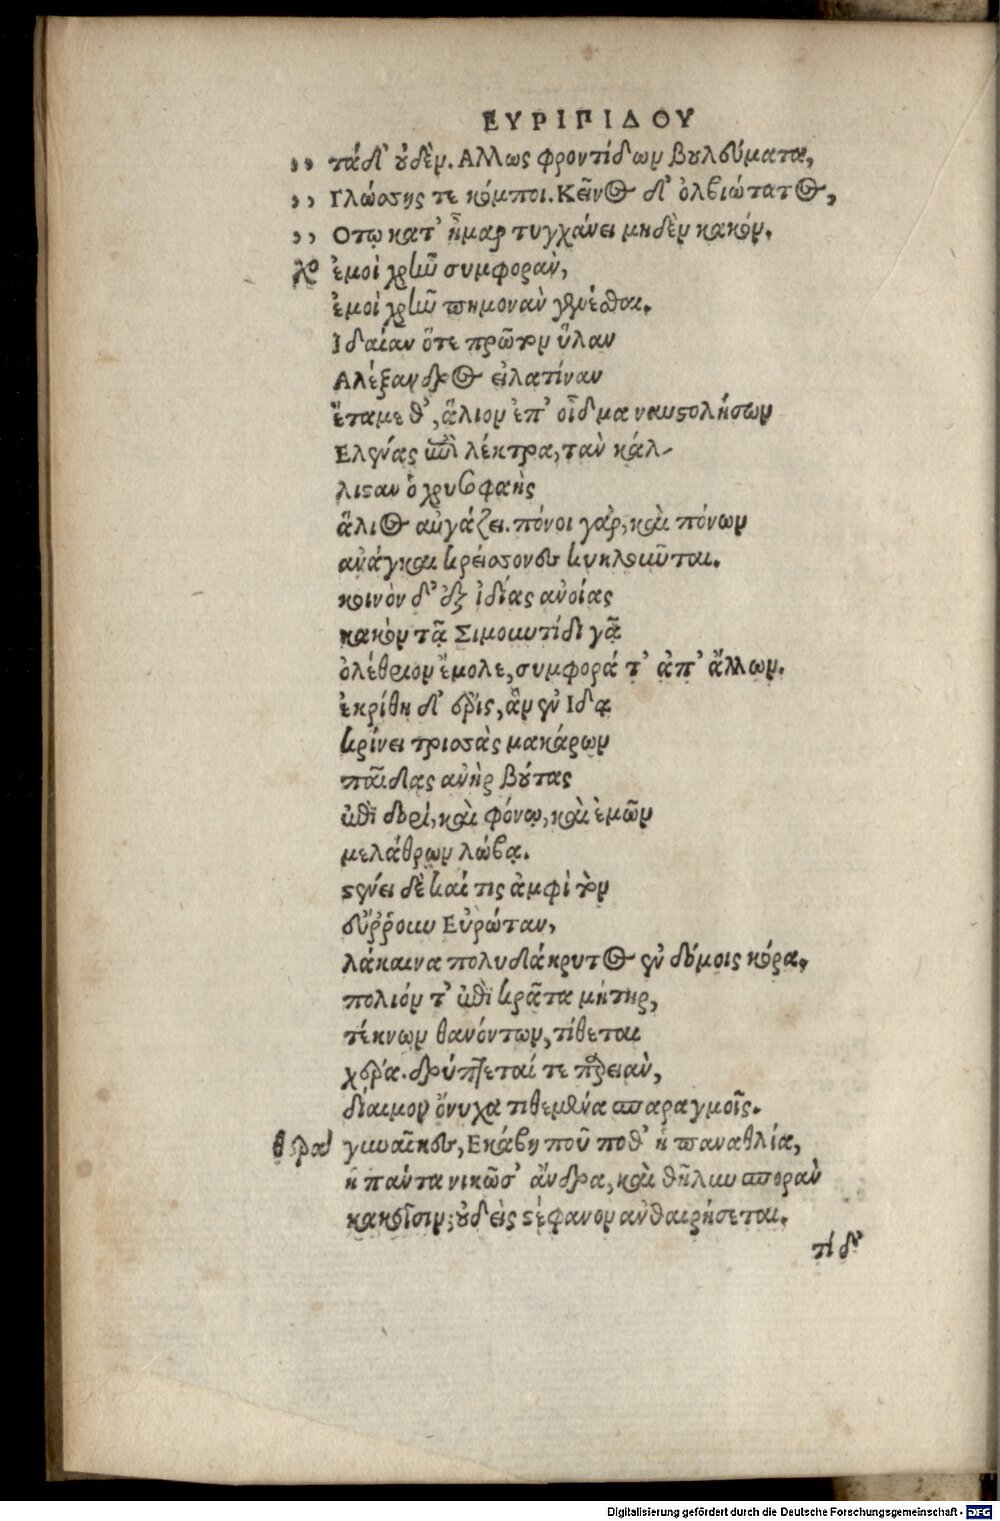 ΕΥΡΙΠΙΔΟΥ
,, τάδ' οὐδὲν. Ἄλλως φροντίδων βουλεύματα,
,, Γλώσσης τε κόμποι. Κεῖνος δ' ὀλβιώτατος,
,, Ὅτῳ κατ' ἦμαρ τυγχάνει μηδὲν κακόν.
χο ἐμοὶ χρῆν συμφορὰν,
ἐμοὶ χρῆν πημονὰν γενέσθαι.
Ἰδαίαν ὅτε πρῶτον ὕλαν
Ἀλέξανδρος εἰλατίναν
ἔταμεθ', ἅλιον ἐπ' οἶδμα ναυστολήσων
Ἑλένας ἐπὶ λέκτρα, τὰν κάλ-
λισταν ὁ χρυσοφαὴς
ἅλιος αὐγάζει. πόνοι γὰρ, καὶ πόνων
ἀνάγκαι κρείσσονες κυκλοῦνται.
κοινὸν δ' ἐξ ἰδίας ἀνοίας
κακὸν τᾷ Σιμουντίδι γᾷ
ὀλέθριον ἔμολε, συμφορά τ' ἀπ' ἄλλων.
ἐκρίθη δ' ἔρις, ἃν ἐν Ἴδᾳ
κρίνει τρισσὰς μακάρων
παῖδας ἀνὴρ βούτας
ἐπὶ δορὶ, καὶ φόνῳ, καὶ ἐμῶν
μελάθρων λώβᾳ.
στένει δὲ καί τις ἀμφὶ τὸν
εὔῤῥοον Εὐρώταν,
λάκαινα πολυδάκρυτος ἐν δόμοις κόρα,
πολιόν τ' ἐπὶ κρᾶτα μήτηρ,
τέκνων θανόντων, τίθεται
χέρα. δρύπτεταί τε παρειὰν,
δίαιμον ὄνυχα τιθεμένα σπαραγμοῖς.
θερα γυναῖκες, Ἑκάβη ποῦ ποθ' ἡ παναθλία,
ἡ πάντα νικῶσ' ἄνδρα, καὶ θῆλυν σπορὰν
κακοῖσιν; οὐδεὶς στέφανον ἀνθαιρήσεται.
τί δ'
Digitalisierung gefördert durch die Deutsche Forschungsgemeinschaft - DFG